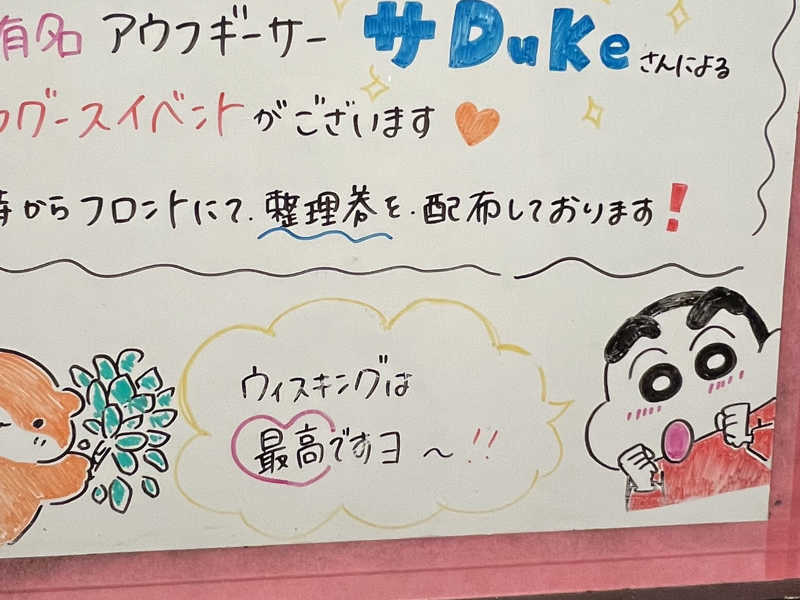 有名 アウフギーサー サDuKe さんによる
ウグースイベントがございます
時からフロントにて、整理券を、配布しております!
ウィスキングは
最高ですヨ〜!!